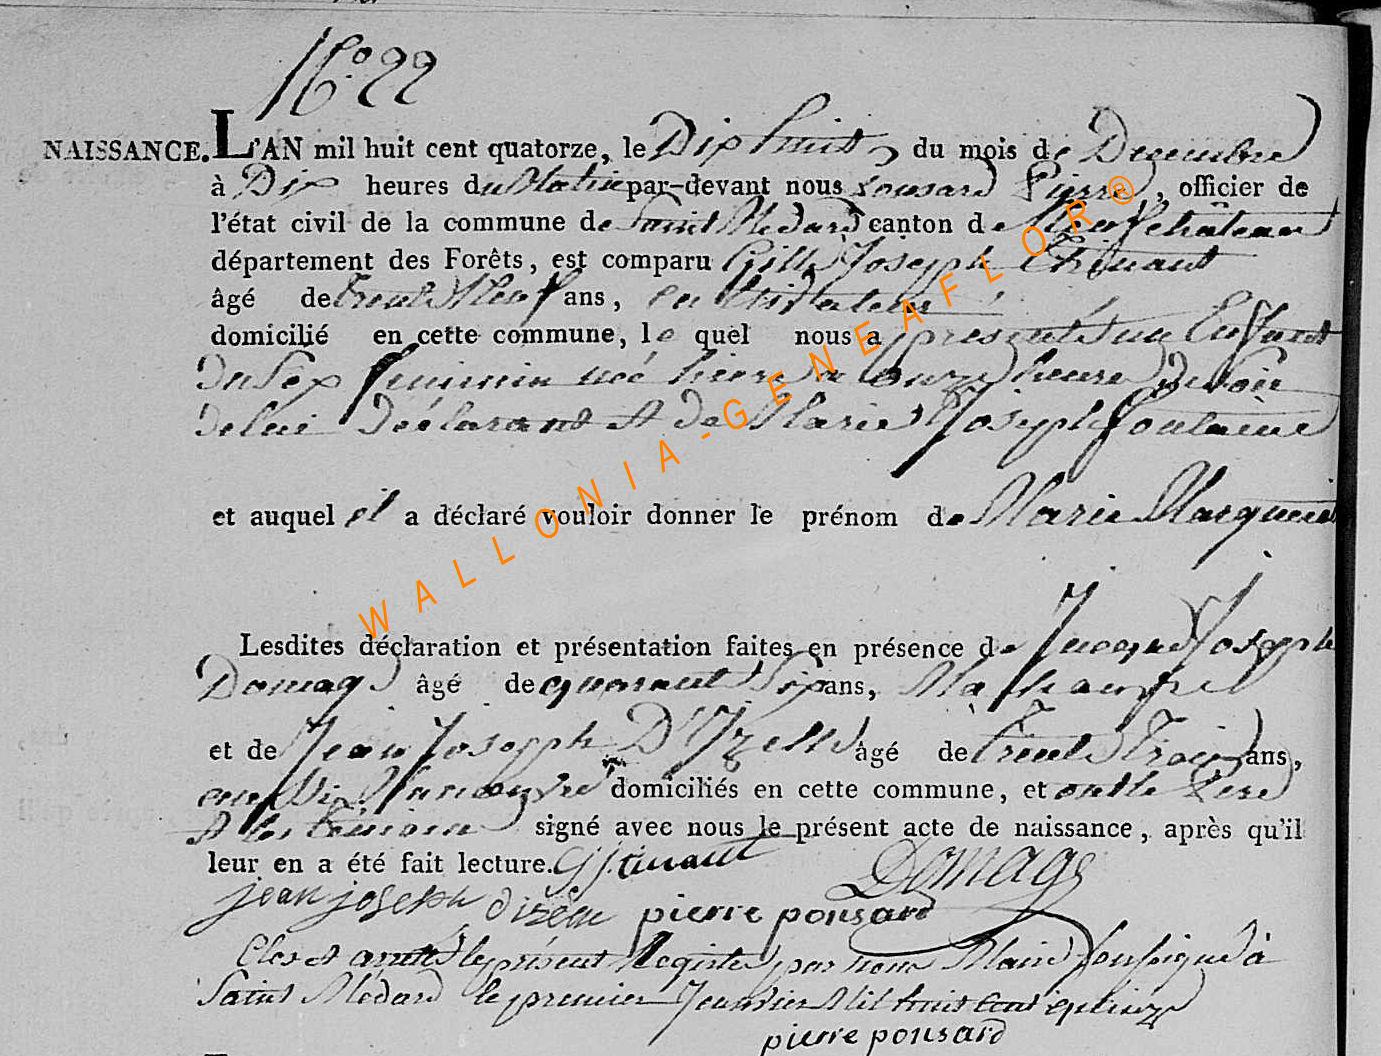 N° 22
NAISSANCE. L'AN mil huit cent quatorze, le Dix huit du mois de Decembre
à Dix heures du Matin par-devant nous Ponsard Pierre, officier de
l'état civil de la commune de Saint Medard canton de Neufchateau
département des Forêts, est comparu Gille Joseph Thiriant
âgé de trente Neuf ans, Cultivateur
domicilié en cette commune, lequel nous a presenté un Enfant
Du Sex feminin néé hiere a onze heure Du Soir
De lui Déclarant Et De Marie Joseph fontaine
et auquel il a déclaré vouloir donner le prénom de Marie Marguerite
Lesdites déclaration et présentation faites en présence de Jacque Joseph
Domage âgé de quarante Six ans,
et de Jean Joseph D'Izelle âgé de trente Trois ans,
domiciliés en cette commune, et ont le Pere
Et les temoins signé avec nous le présent acte de naissance, après qu'il
leur en a été fait lecture.
Domage
jean joseph pierre ponsard
Clos et arretés le présent Registre par nous Maire soussigné à
Saint Médard le premier Janvier Mil huit Cent quinze
pierre ponsard
WALLONIA-GENEAFLOR®